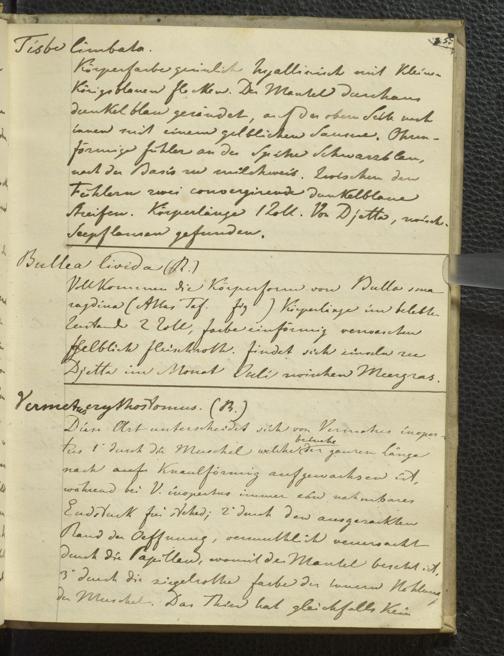 Tisbe limbata.
Körperfarbe grünlich hyallinisch mit kleinen
Königsblauen flecken. Der Mantel durchaus
dunkelblau gerändet, auf der obern Seite nach
innen mit einem gelblichen Saume. Ohren-
förmige fühler an der Spitze Schwarzblau,
nach der Basis zu milchweis. Zwischen den
Fühlern zwei convergirende dunkelblaue
Streifen. Körperlänge 1 Zoll. Von Djetta, zwisch.
Seepflanzen gefunden.
Bullea livida (R.)
Vollkommen die Körperform von Bulla sma
ragdina (Atlas Taf. fig ) Körperlänge im belebten
Zustande 2 Zoll, farbe einförmig verwaschen
gelblich fleischroth. findet sich einzeln zu
Djetta im Monat Juli zwischen Meergras.
Vermetus erythrostomus. (R.)
Diese Art unterscheidet sich von Vermetus inoper-
tus 1° durch die Muschel welche beinahe der ganzen Länge
nach aufs Knaulförmig aufgewachsen ist,
während bei V. inopertus immer ein nahmbares
Endstück frei steht; 2° durch den ausgezakten
Rand der Oeffnung, vermuthlich verursacht
durch die Papillen, womit der Mantel besetzt ist,
3° durch die ziegelrothe farbe der innern Höhlung
der Muschel. Das Thier hat gleichfalls kein